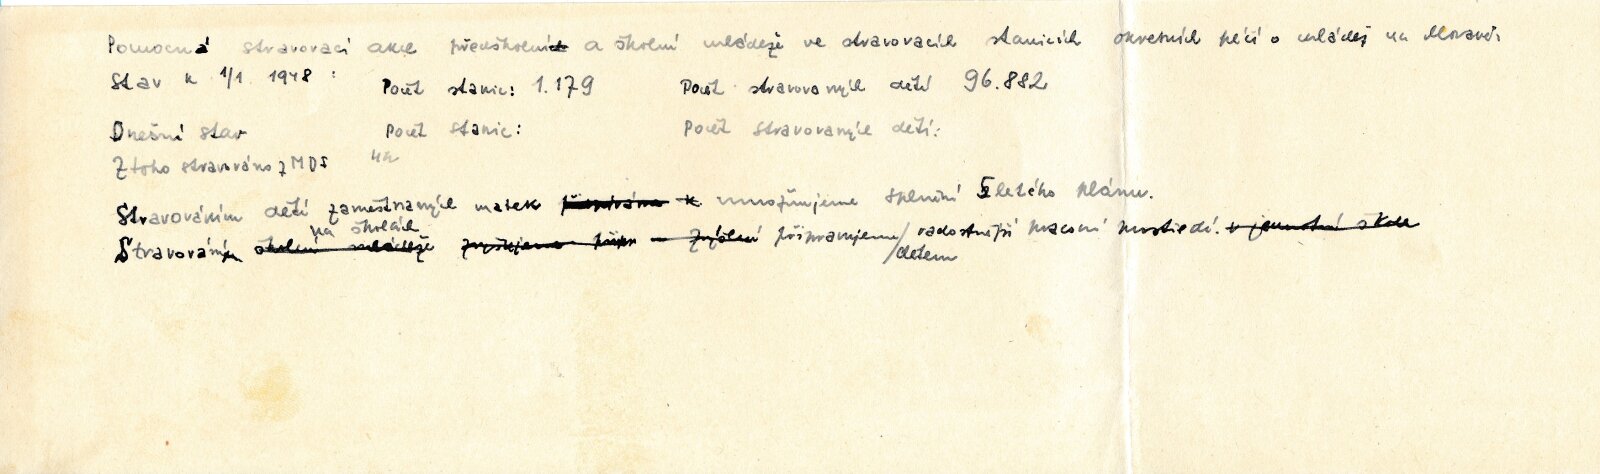 Pomocná stravovací akce předškolní a školní mládeže ve stravovacích stanicích okresních péčí o mládež na Moravě:
Stav k 1/1 1948 : Počet stanic: 1.179 Počet stravovaných dětí 96.882
Dnešní stav Počet stanic: Počet stravovaných dětí:
Z toho stravováno z MDS
Stravováním dětí zaměstnaných matek umožňujeme splnění 5letého plánu.
na školách
Stravováním školní mládeže zvyšujeme připravujeme / radostnější pracovní prostředí. v jednotné škole
/dětem